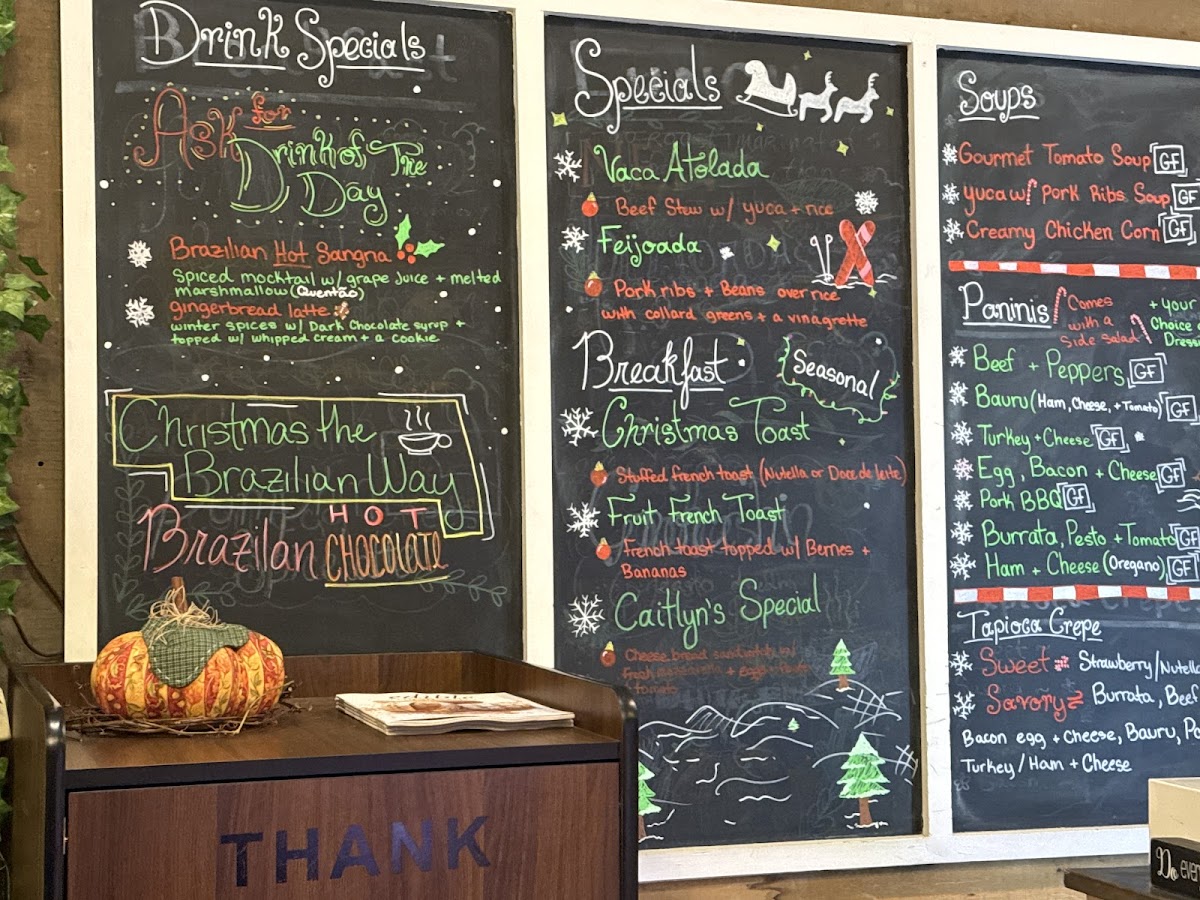 Drink Specials
Ask for
Drink of The
Day
Brazilian Hot Sangria
Spiced mocktail w/ grape juice + melted
marshmallow (Quentão)
gingerbread latte
winter spices w/ Dark Chocolate syrup +
topped w/ whipped cream + a cookie
Christmas the
Brazilian Way
HOT
Brazilan CHOCOLATE
Specials
Vaca Atolada
Beef Stew w/ yuca + rice
Feijoada
Pork ribs + Beans over rice
with collard greens + a vinagrette
Breakfast
Seasonal
Christmas Toast
Stuffed french toast (Nutella or Doce de leite)
Fruit French Toast
French toast topped w/ Berries +
Bananas
Caitlyn's Special
Cheese bread sandwich w/
fresh + eggs +
tomato
Soups
Gourmet Tomato Soup GF
yuca w/ Pork Ribs Soup GF
Creamy Chicken Corn GF
Paninis
Comes
with a
side salad
+ your
Choice
Dressi
Beef + Peppers GF
Bauru (Ham, Cheese, + Tomato) GF
Turkey + Cheese GF
Egg, Bacon + Cheese GF
Pork BBQ GF
Burrata, Pesto + Tomato GF
Ham + Cheese (Oregano) GF
Tapioca Crepe
Sweet Strawberry/Nutella
Savory Burrata, Beef
Bacon egg + Cheese, Bauru, Po
Turkey / Ham + Cheese
edible
THANK
Do every